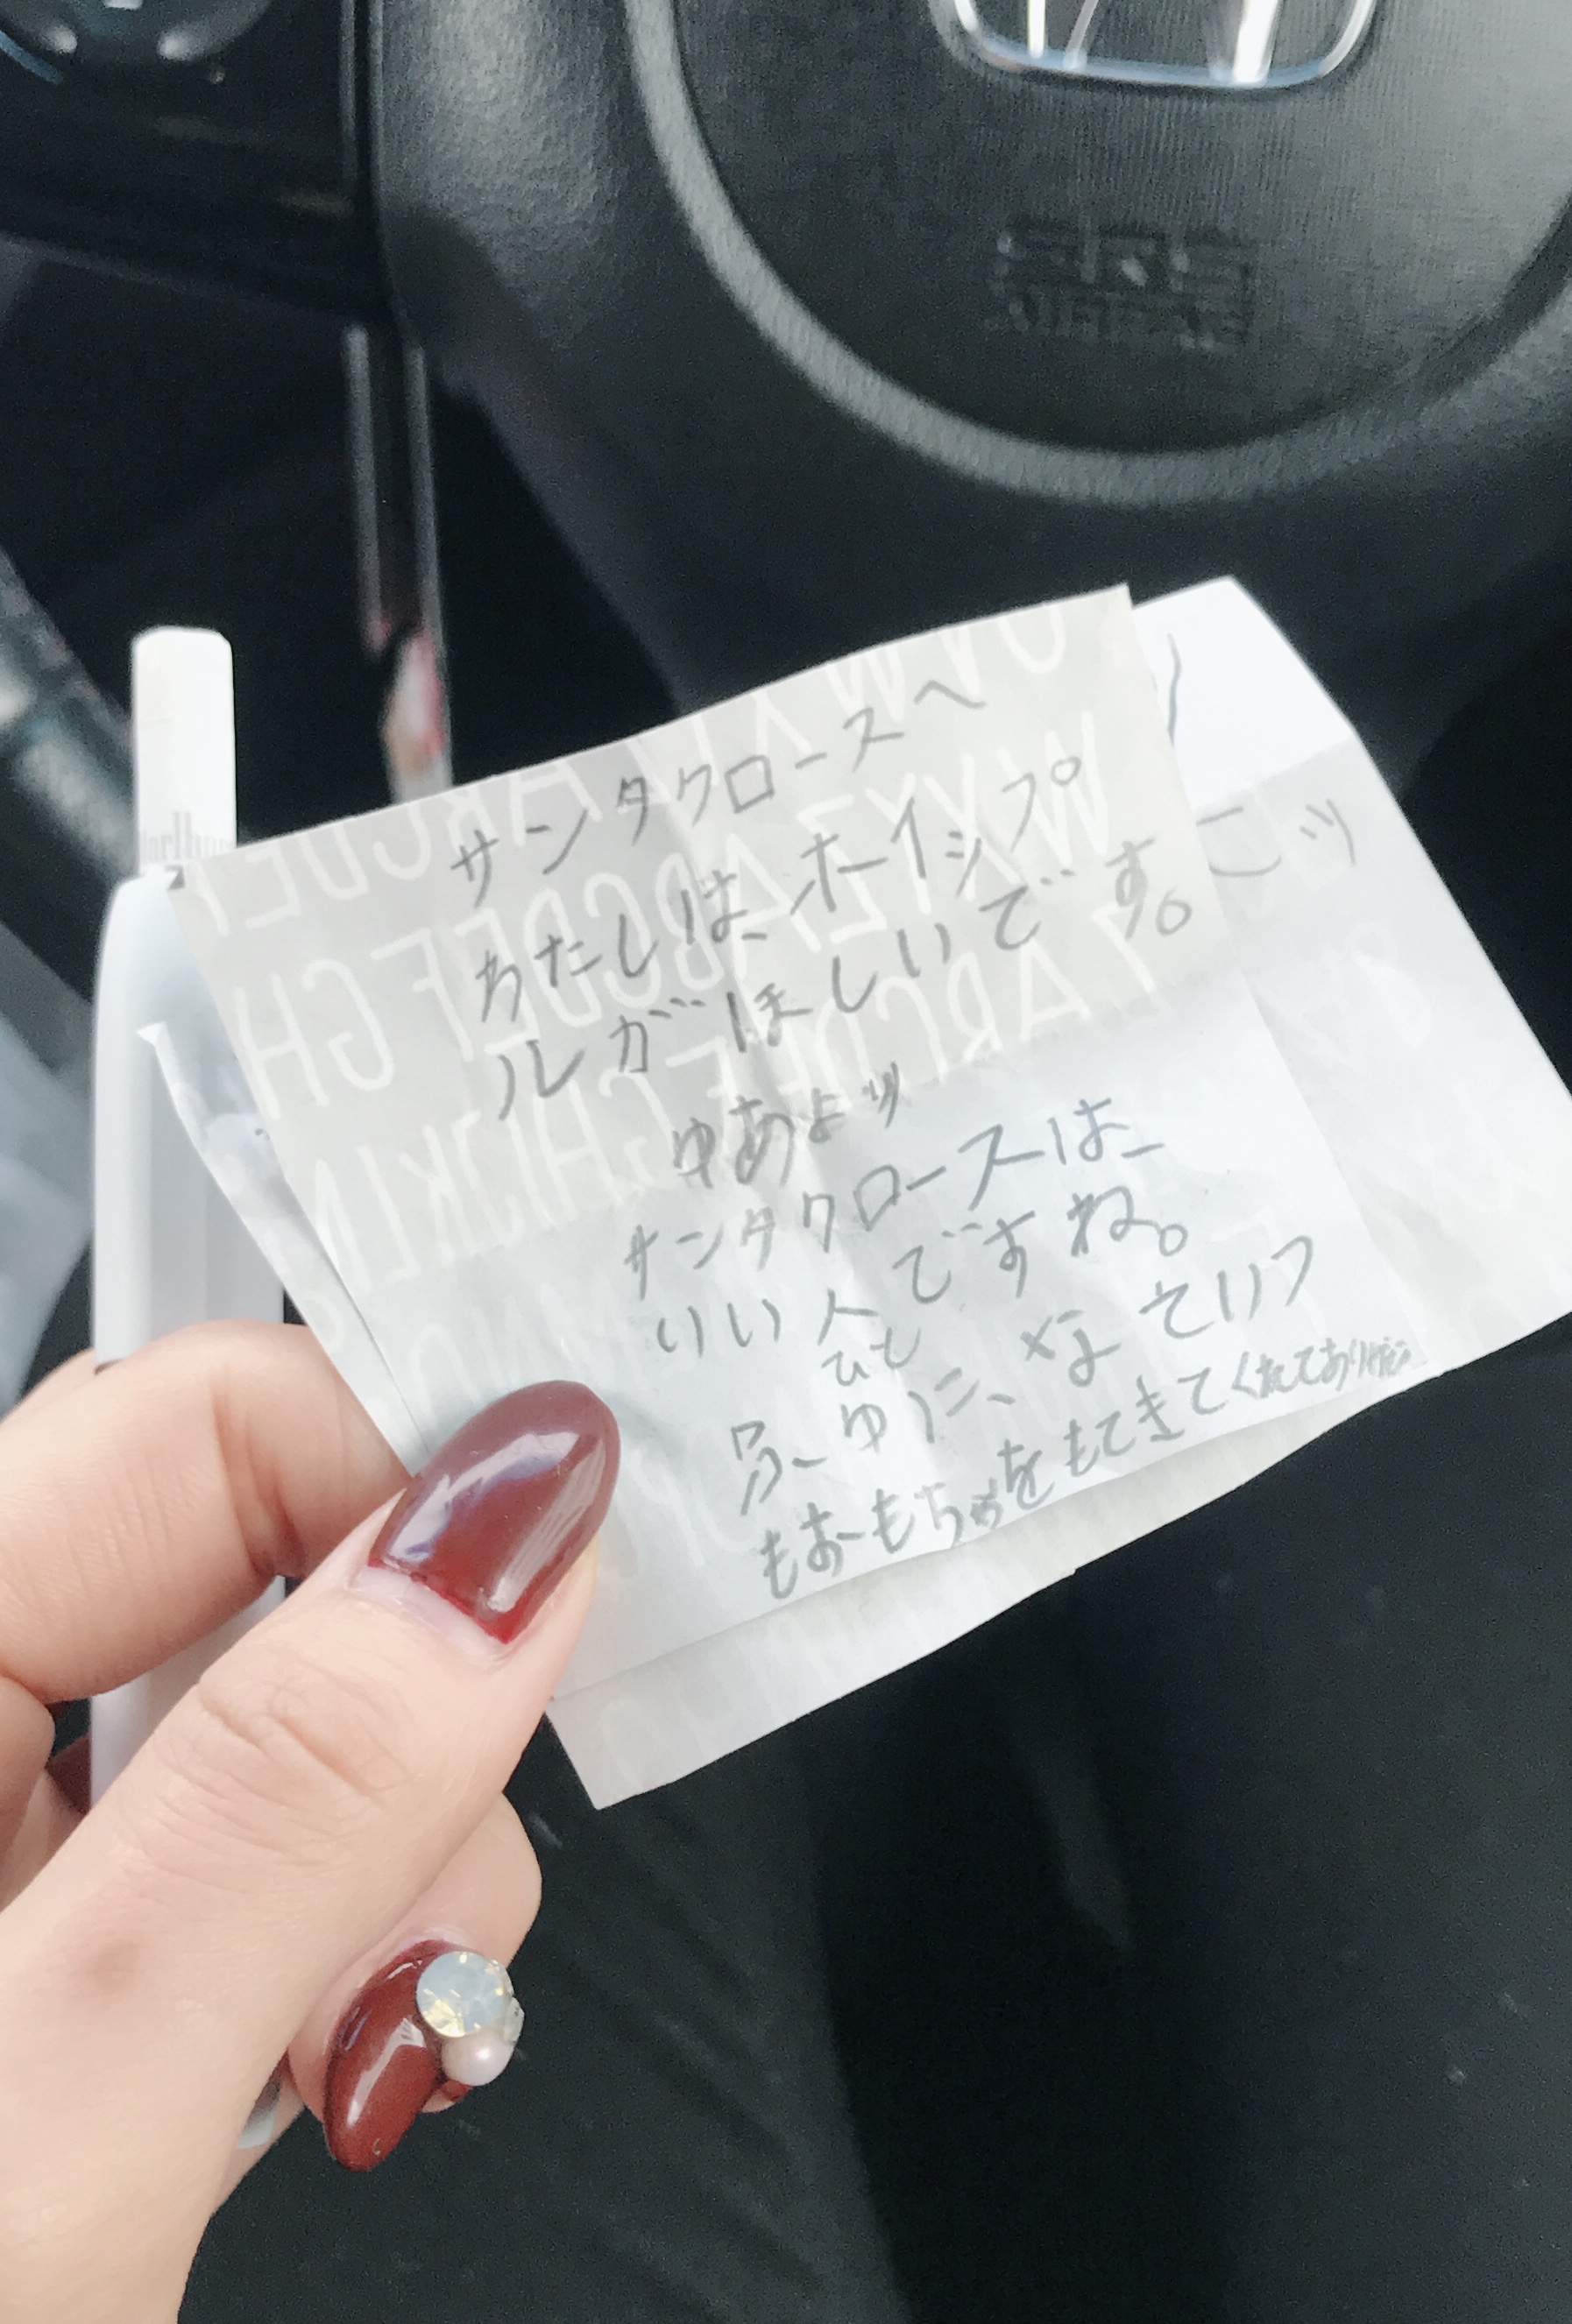 サンタクロースへ
わたしは、ホイップ
ルがほしいです。
ゆあよリ
サンタクロースは、
いい人ですね。
ひと
ふゆに、
もおもちゃをもてきてくれてありがと
SRS
AIRBAG
Marlboro